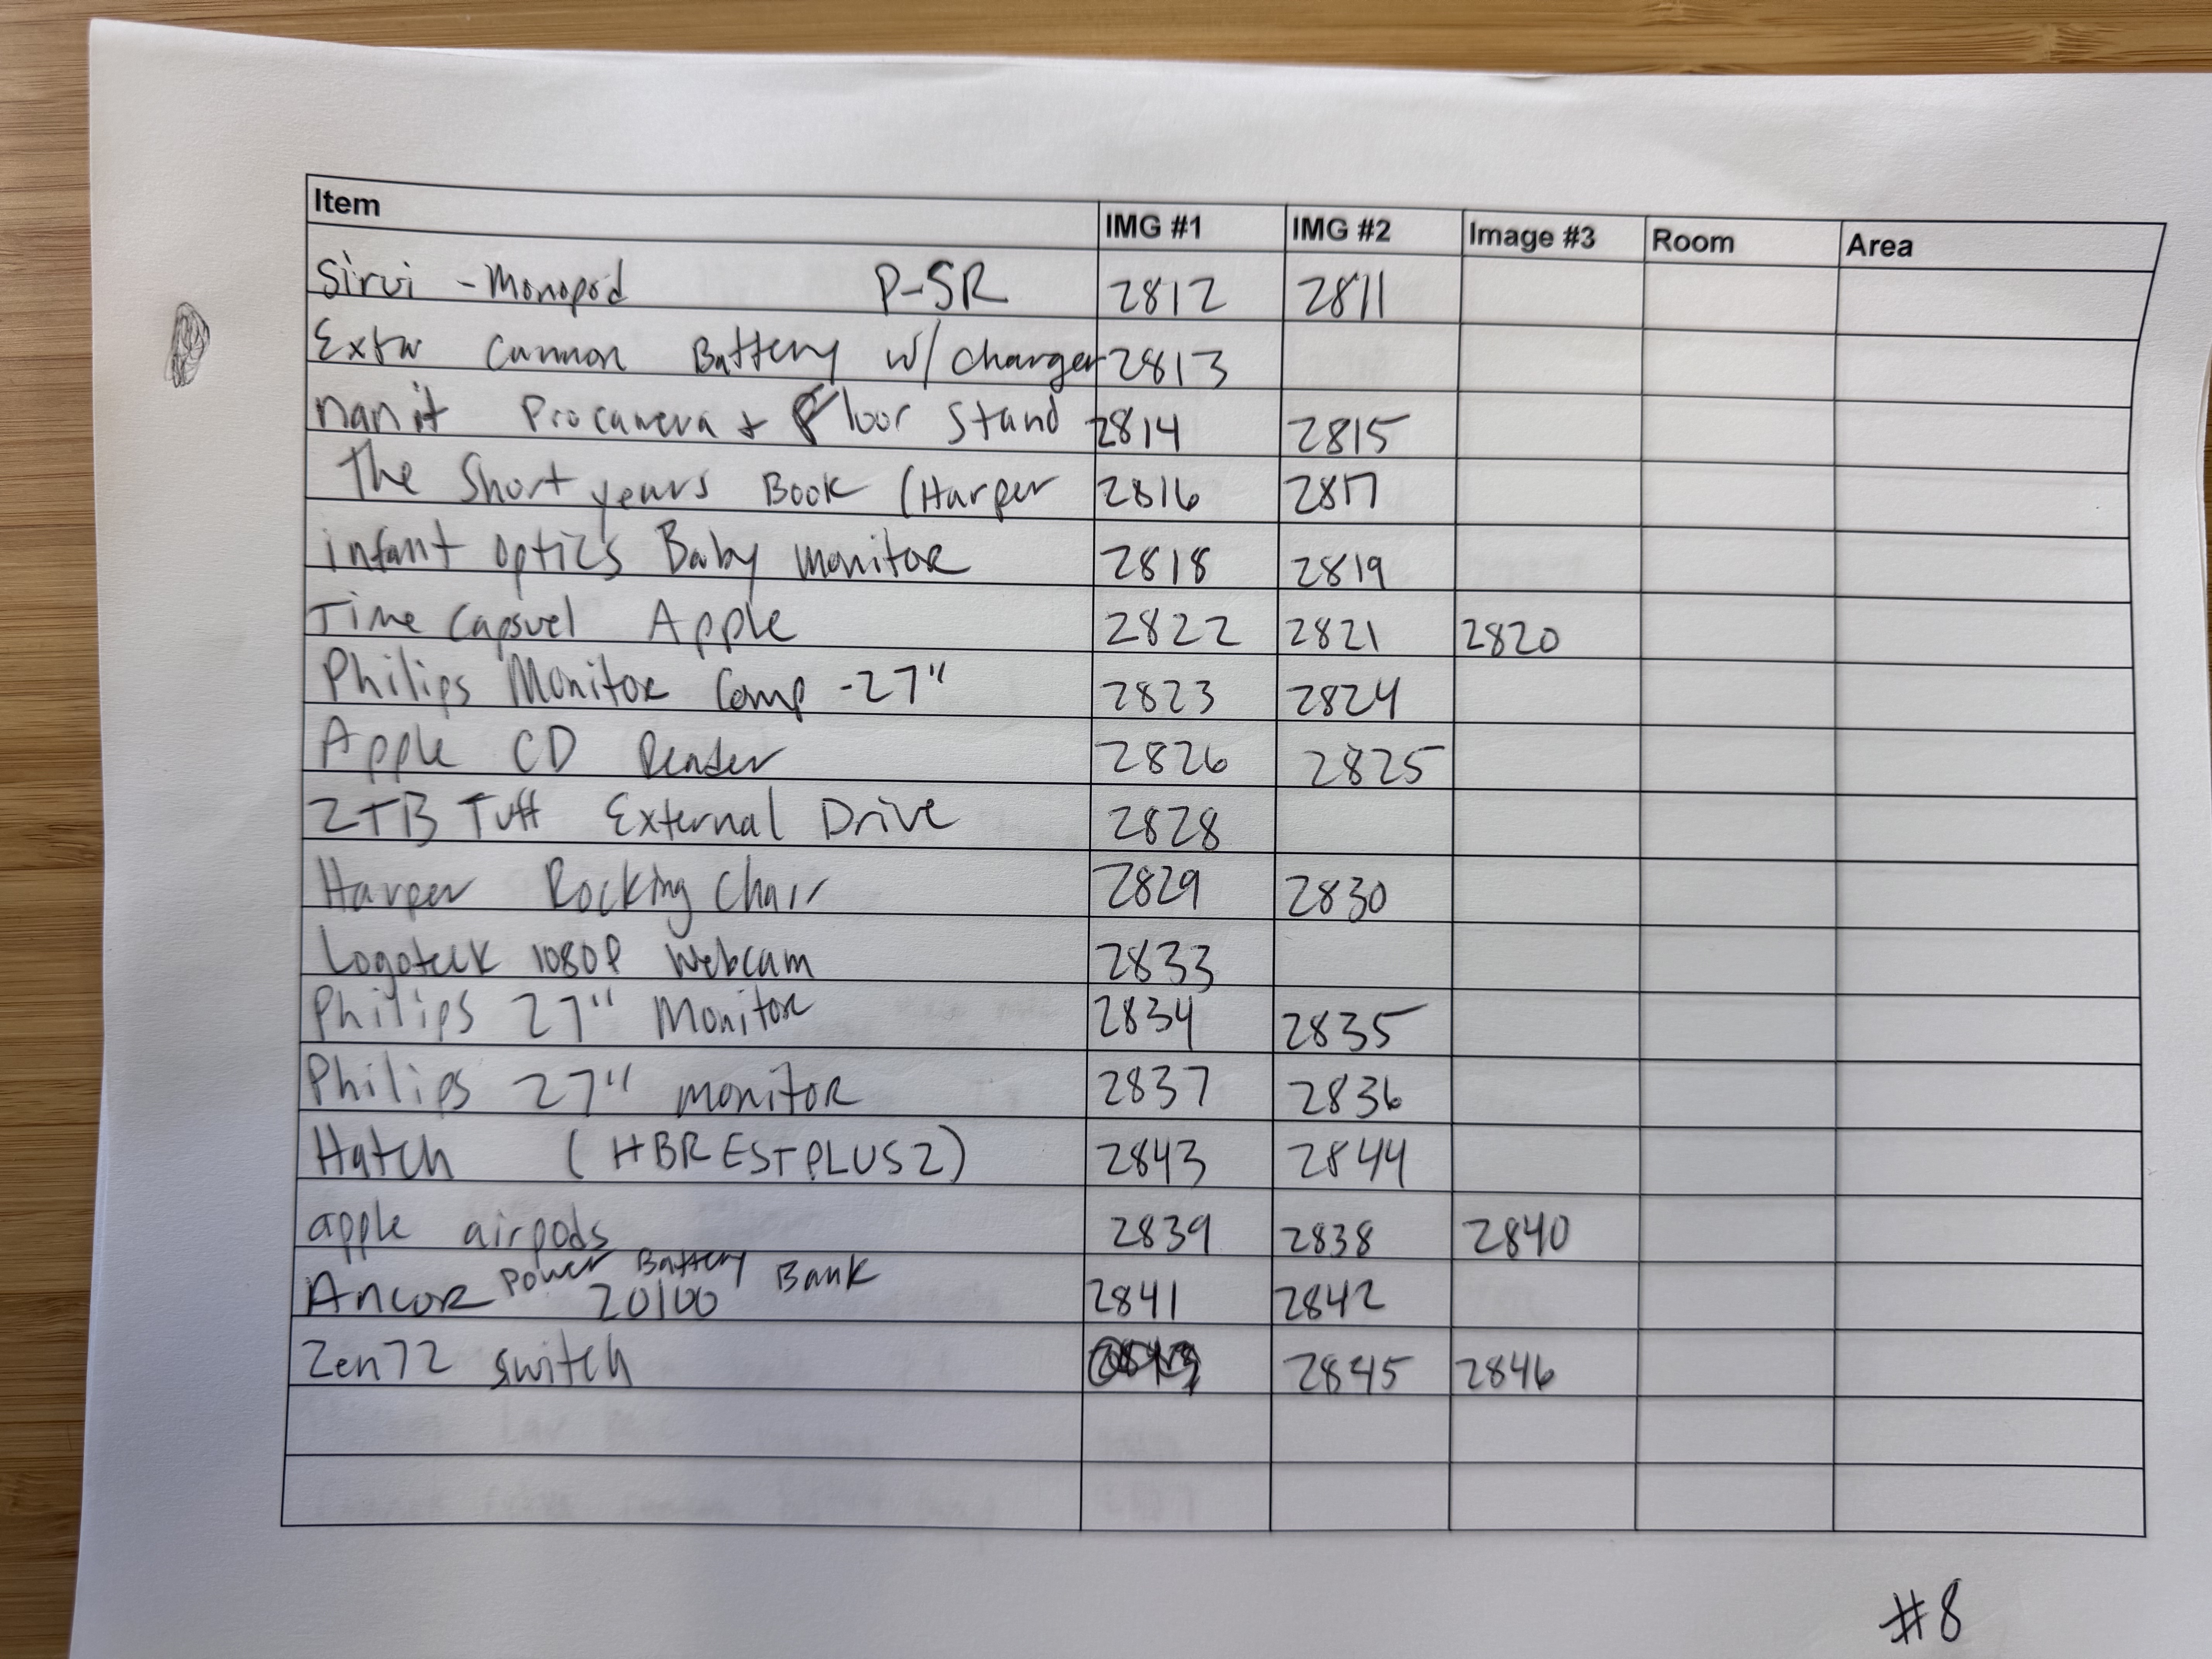 Item IMG #1 IMG #2 Image #3 Room Area
Sirui - Monopod P-SR 2812 2811
Extra Cannon Battery w/ charger 2813
nanit Pro camera + Floor Stand 2814 2815
The Short years Book (Harper 2816 2817
infant optics Baby monitor 2818 2819
Time Capsuel Apple 2822 2821 2820
Philips Monitor Comp - 27" 2823 2824
Apple CD Reader 2826 2825
2TB Tuff External Drive 2828
Harper Rocking Chair 2829 2830
Logoteck 1080P Webcam 2833
Philips 27" Monitor 2834 2835
Philips 27" monitor 2837 2836
Hatch (HBRESTPLUS2) 2843 2844
apple airpods 2839 2838 2840
Power Battery Bank
Ancor 20100 2841 2842
Zen72 switch 2845 2846
#8